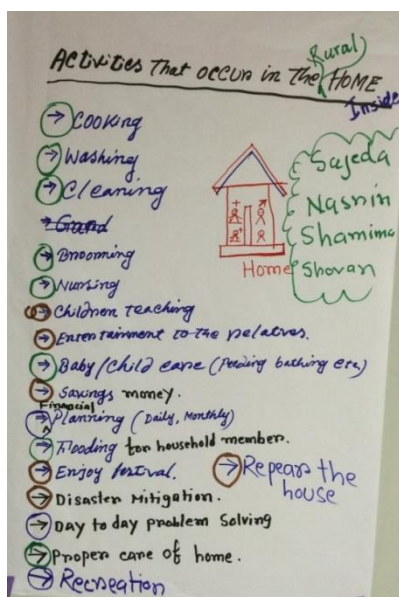 Activities That occur in The (Rural) HOME
Inside
→ Cooking
→ Washing
→ Cleaning
→ Brooming
→ Nursing
→ Children teaching
→ Entertainment to the relatives.
→ Baby/child care (Feeding bathing etc.)
→ Savings money.
→ Financial Planning (Daily, Monthly)
→ Flooding for household member.
→ Enjoy festival.
→ Repears the
house
→ Disaster Mitigation.
→ Day to day problem Solving
→ Proper care of home.
→ Recreation
Home
Sajeda
Nasnin
Shamima
Shovan